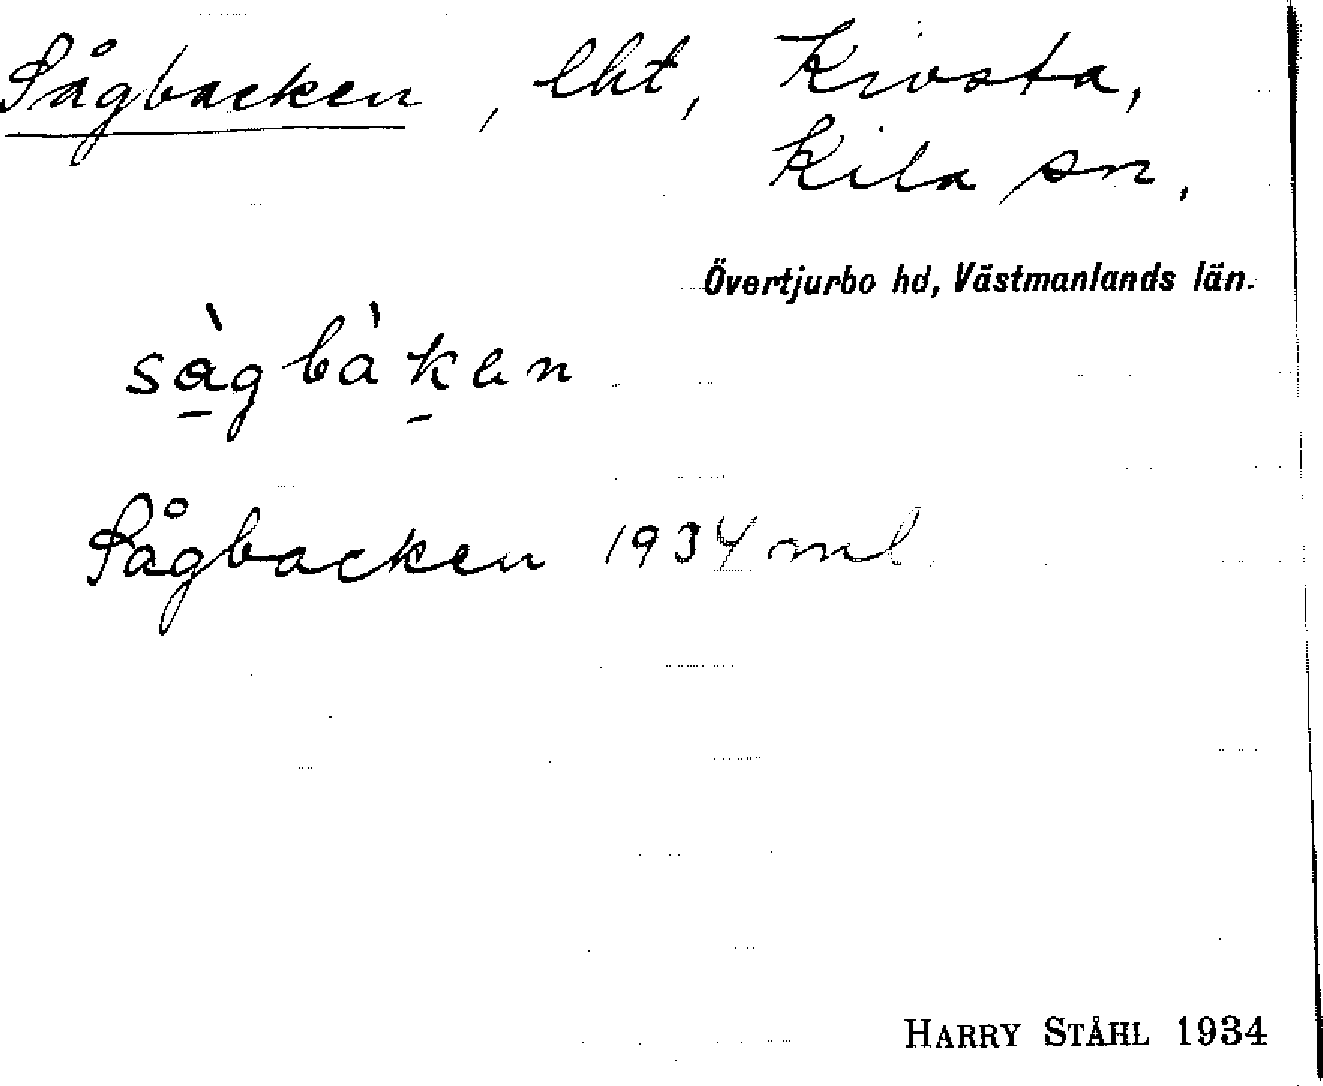 Sågbacken, lht, Krivsta,
Kila sn,
Övertjurbo hd, Västmanlands län.
sàgbàkan
Sågbacken 1934 ml
HARRY STÅHL 1934